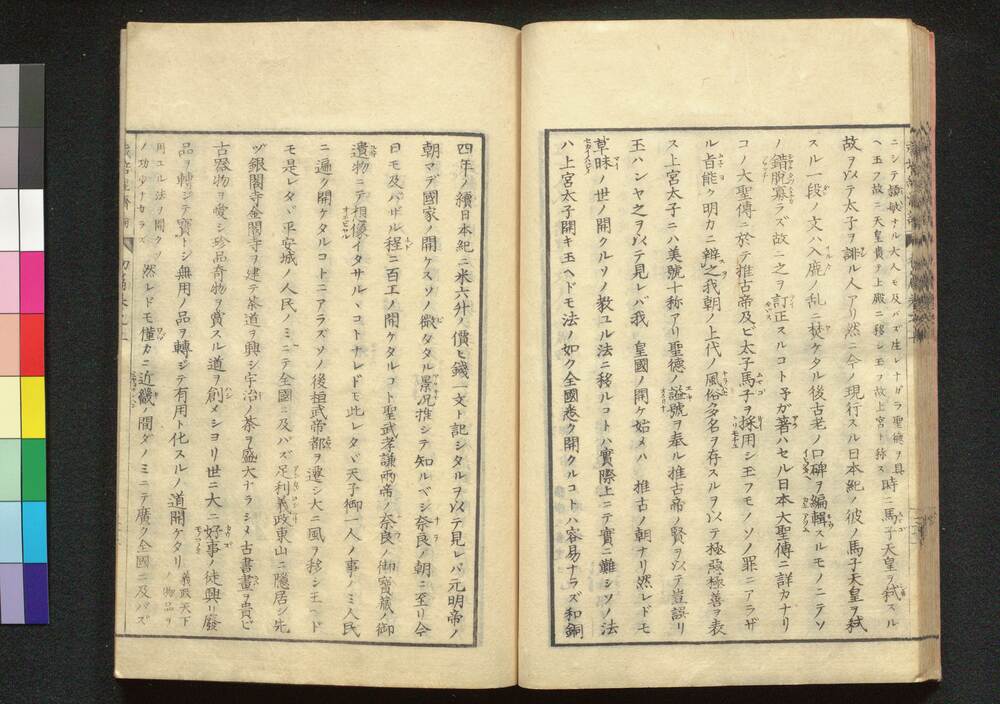 ニシテ識敏ナル大人モ及バズ生レナガラ聖徳ヲ具ヘ玉フ故ニ天皇貴ヲ上殿ニ移シ玉フ故上宮ト称ス 時ニ馬子天皇ヲ弑スル
故ヲ以テ太子ヲ誹ル人アリ然ニ今ノ現行スル日本紀ノ彼ノ馬子天皇ヲ弑
スル一段ノ文ハ入鹿ノ乱ニ焚ケタル後古老ノ口碑ヲ編輯スルモノニテソ
ノ錯脱寡ラズ故ニ之ヲ訂正スルコト予ガ著ハセル日本大聖傳ニ詳カナリ
コノ大聖傳ニ於テ推古帝及ビ太子馬子ヲ採用シ王フモノソノ罪ニアラザ
ル旨能ク明カニ辨之我朝ノ上代ノ風俗多名ヲ存スルヲ以テ極惡極善ヲ表
ス上宮太子ニハ美號十称アリ聖德ノ謚號ヲ奉ル推古帝ノ賢ヲ以テ豈誤リ
玉ハンヤ之ヲ以テ見レバ我 皇國ノ開ケ始メハ 推古ノ朝ナリ然レドモ
草昧ノ世ノ開クルソノ教ユル法ニ移ルコトハ實際上ニテ實ニ難シソノ法
ハ上宮太子開キ玉ヘドモ法ノ如ク全國悉ク開クルコトハ容易ナラズ和銅
四年ノ續日本紀ニ米六升ノ價ヒ錢一文ト記シタルヲ以テ見レバ元明帝ノ
朝マデ國家ノ開ケスソノ微タル景况推シテ知ルベシ奈良ノ朝ニ至リ今
日モ及バザル程ニ百工ノ開ケタルコト聖武孝謙両帝ノ奈良ノ御寳藏ノ御
遺物ニテ想像イタサルヽコトナレドモ此レタヾ天子御一人ノ事ノミ人民
ニ遍ク開ケタルコトニアラズソノ後桓武帝都ヲ遷シ大ニ風ヲ移シ王ヘド
モ是レタヾ平安城ノ人民ノミニテ全國ニ及バズ足利義政東山ニ隱居シ先
ヅ銀閣寺金閣寺ヲ建テ茶道ヲ興シ宇治ノ茶ヲ盛大ナラシメ古書畫ヲ貴ビ
古器物ヲ愛シ珍品奇物ヲ賞スル道ヲ創メシヨリ世ニ大ニ好事ノ徒興リ廢
品ヲ轉ジテ寳トシ無用ノ品ヲ轉ジテ有用ト化スルノ道開ケタリ 義政天下ノ物品ヲ
用ユル法ヲ開クノ功少ナカラズ 然レドモ僅カニ近畿ノ間ダノミニテ廣ク全國ニ及バズ